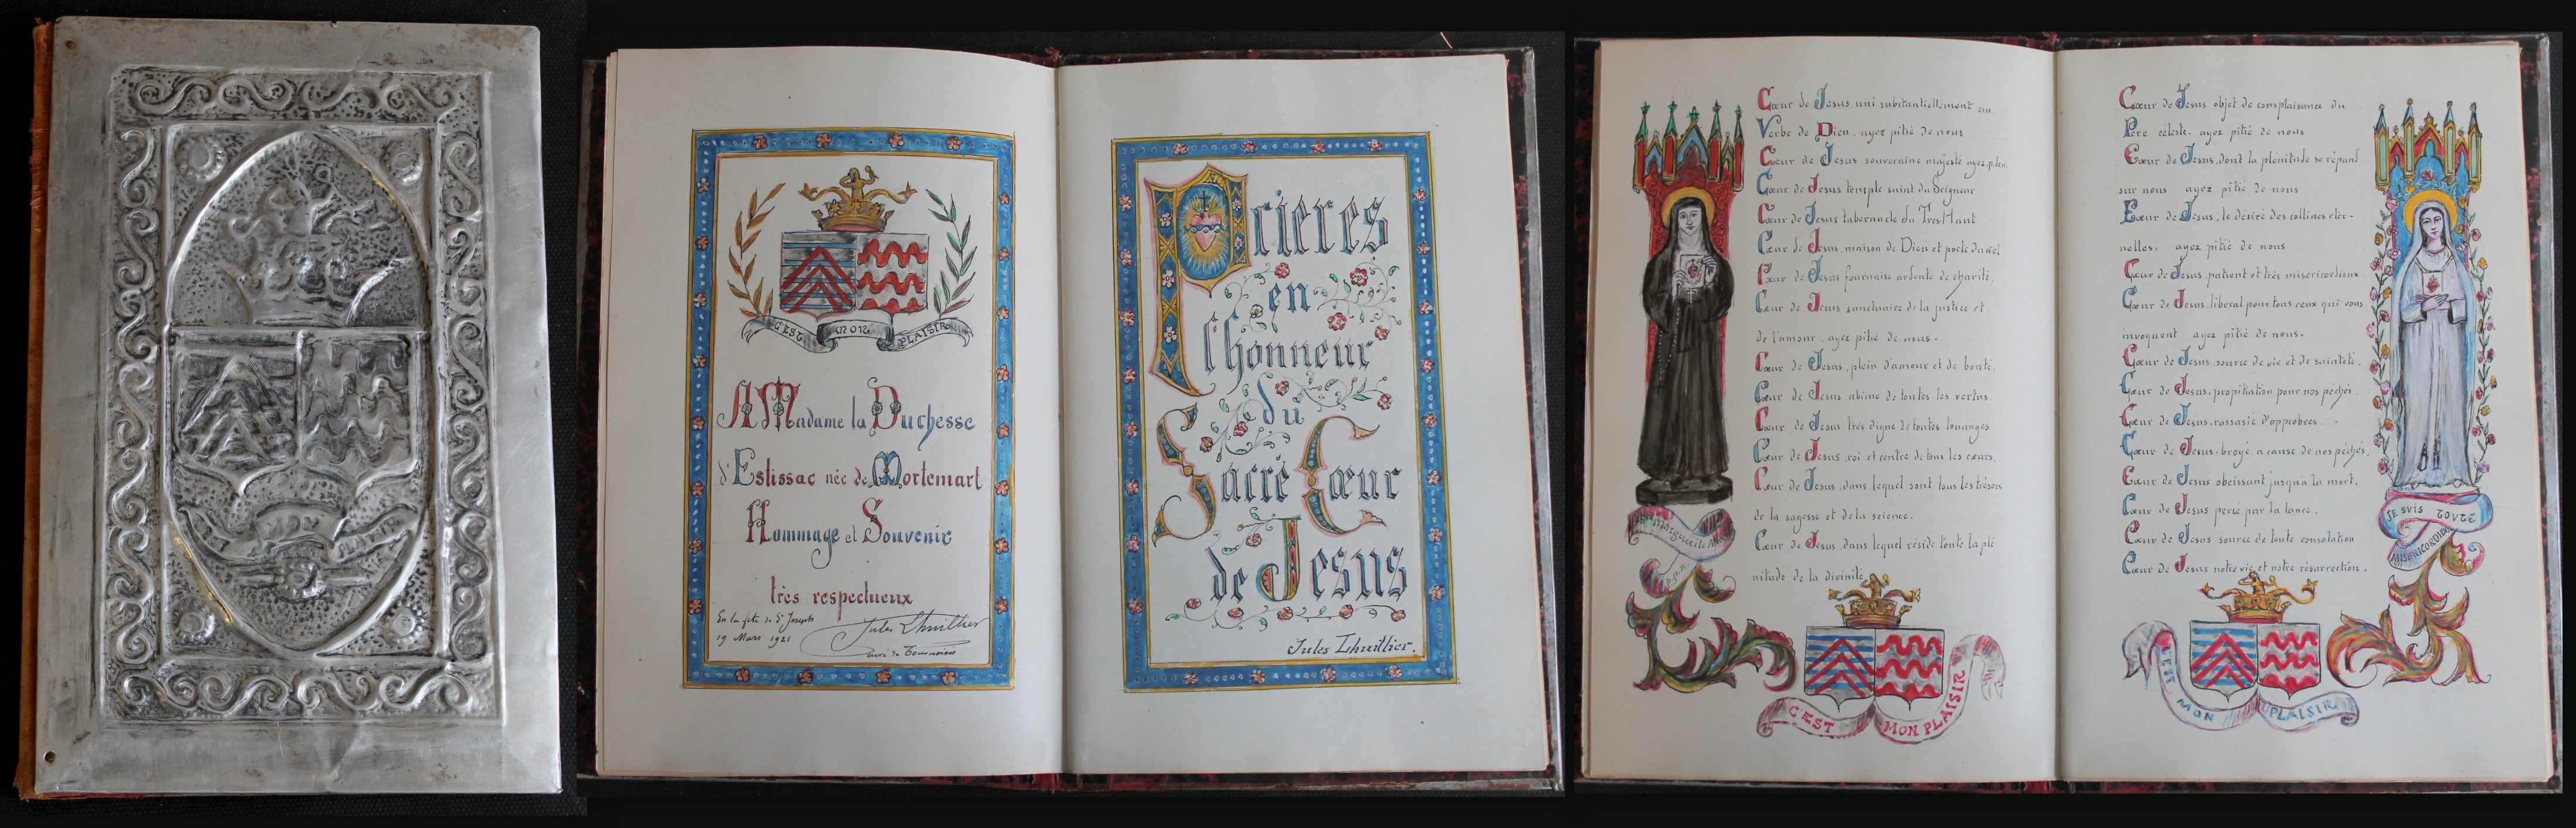 MON
C'EST MON PLAISIR
A Madame la Duchesse
d'Estissac née de Mortemart
Hommage et Souvenir
très respectueux
En la fête de St Joseph
19 Mars 1921
Jules Lhuillier
curé de
Prieres
en
l'honneur
du
Sacré Cœur
de Jesus
Jules Lhuillier.
Cœur de Jesus uni substantiellement au
Verbe de Dieu. ayez pitié de nous
Cœur de Jesus souveraine majesté ayez.p.d.n.
Cœur de Jesus temple saint du Seigneur
Cœur de Jesus tabernacle du Tres Haut
Cœur de Jesus, maison de Dieu et porte du ciel.
Cœur de Jesus fournaise ardente de charité.
Cœur de Jesus sanctuaire de la justice et
de l'amour. ayez pitié de nous.
Cœur de Jesus, plein d'amour et de bonté.
Cœur de Jesus abime de toutes les vertus.
Cœur de Jesus très digne de toutes louanges
Cœur de Jesus, roi et centre de tous les cœurs.
Cœur de Jesus, dans lequel sont tous les trésors
de la sagesse et de la science.
Cœur de Jesus, dans lequel réside toute la plé-
nitude de la divinité
Marguerite
p.p.n.
C'EST MON PLAISIR
Cœur de Jesus objet de complaisance du
Père céleste. ayez pitié de nous
Cœur de Jesus, dont la plénitude se répand
sur nous ayez pitié de nous
Cœur de Jesus, le désiré des collines éter-
nelles, ayez pitié de nous
Cœur de Jesus, patient et très miséricordieux
Cœur de Jesus, liberal pour tous ceux qui vous
invoquent ayez pitié de nous.
Cœur de Jesus, source de vie et de sainteté.
Cœur de Jesus, propitiation pour nos péchés.
Cœur de Jesus, rassasié d'opprobres.
Cœur de Jesus, broyé a cause de nos péchés.
Cœur de Jesus obeissant jusqu'a la mort.
Cœur de Jesus percé par la lance.
Cœur de Jesus source de toute consolation
Cœur de Jesus notre vie et notre résurrection.
JE SUIS TOUTE
MISERICORDIEUSE
C'EST MON PLAISIR